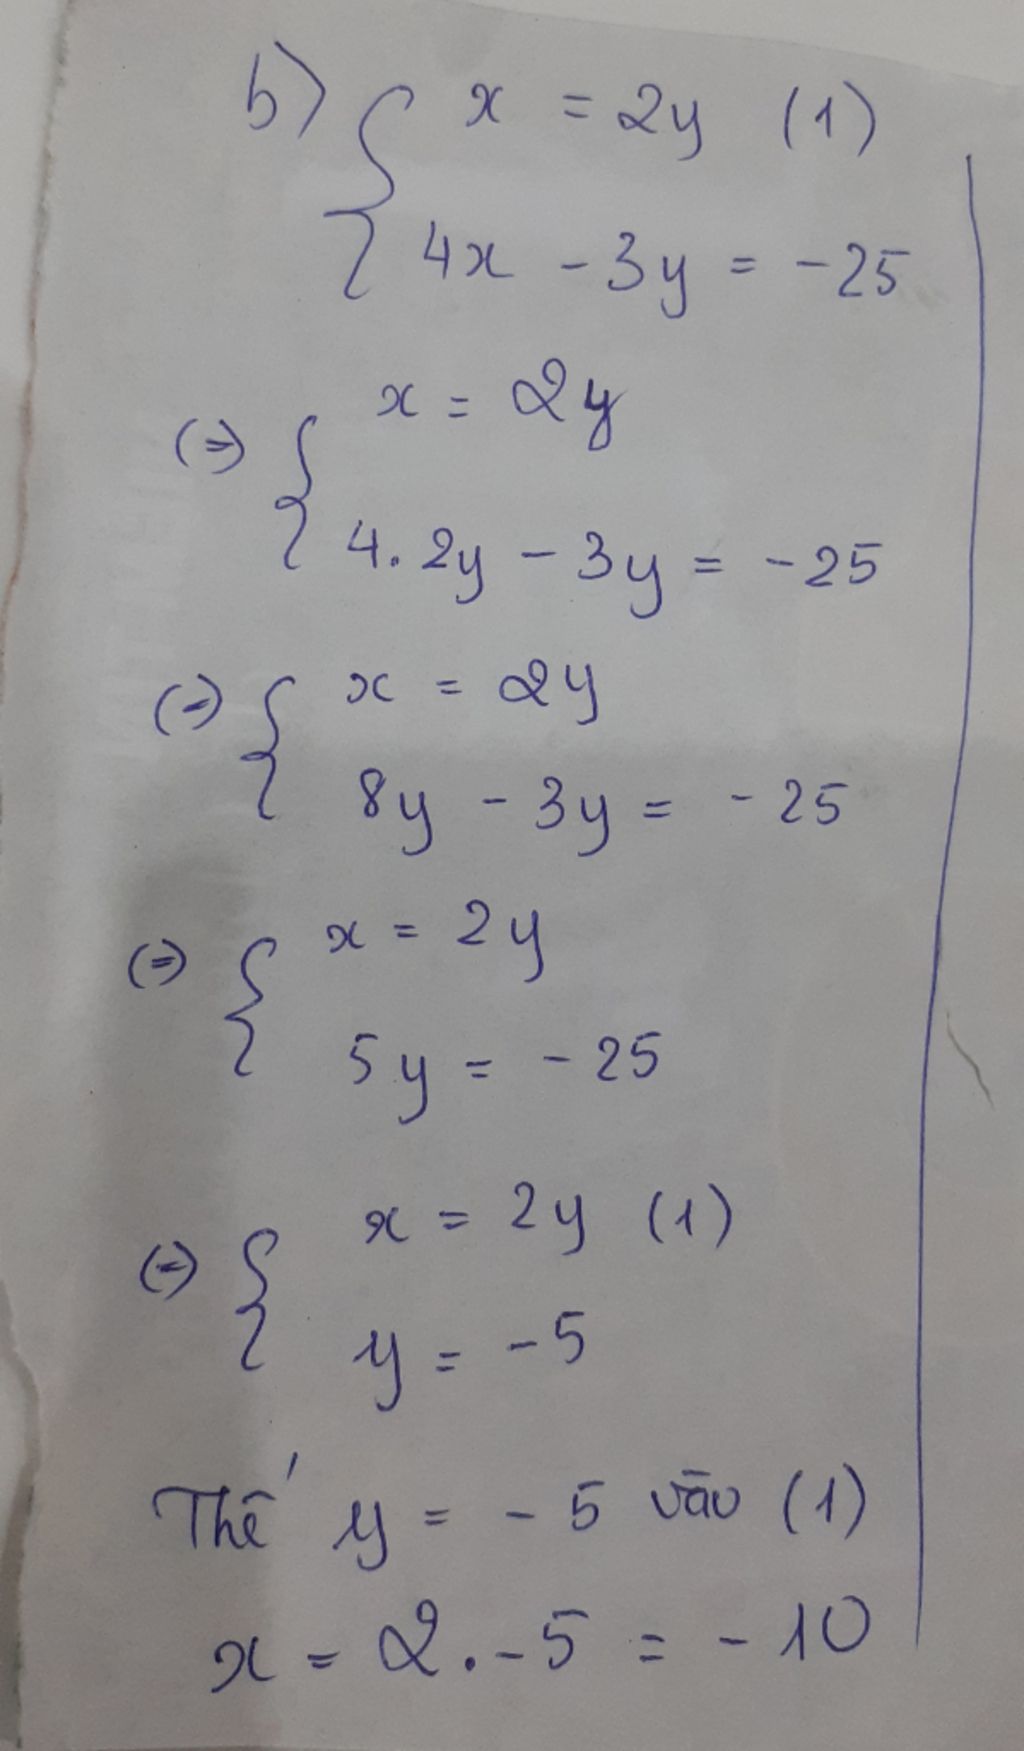 b) { x = 2y (1)
4x - 3y = -25
(=) { x = 2y
4. 2y - 3y = -25
(=) { x = 2y
8y - 3y = -25
(=) { x = 2y
5y = -25
(=) { x = 2y (1)
y = -5
Thế y = -5 vào (1)
x = 2.-5 = -10